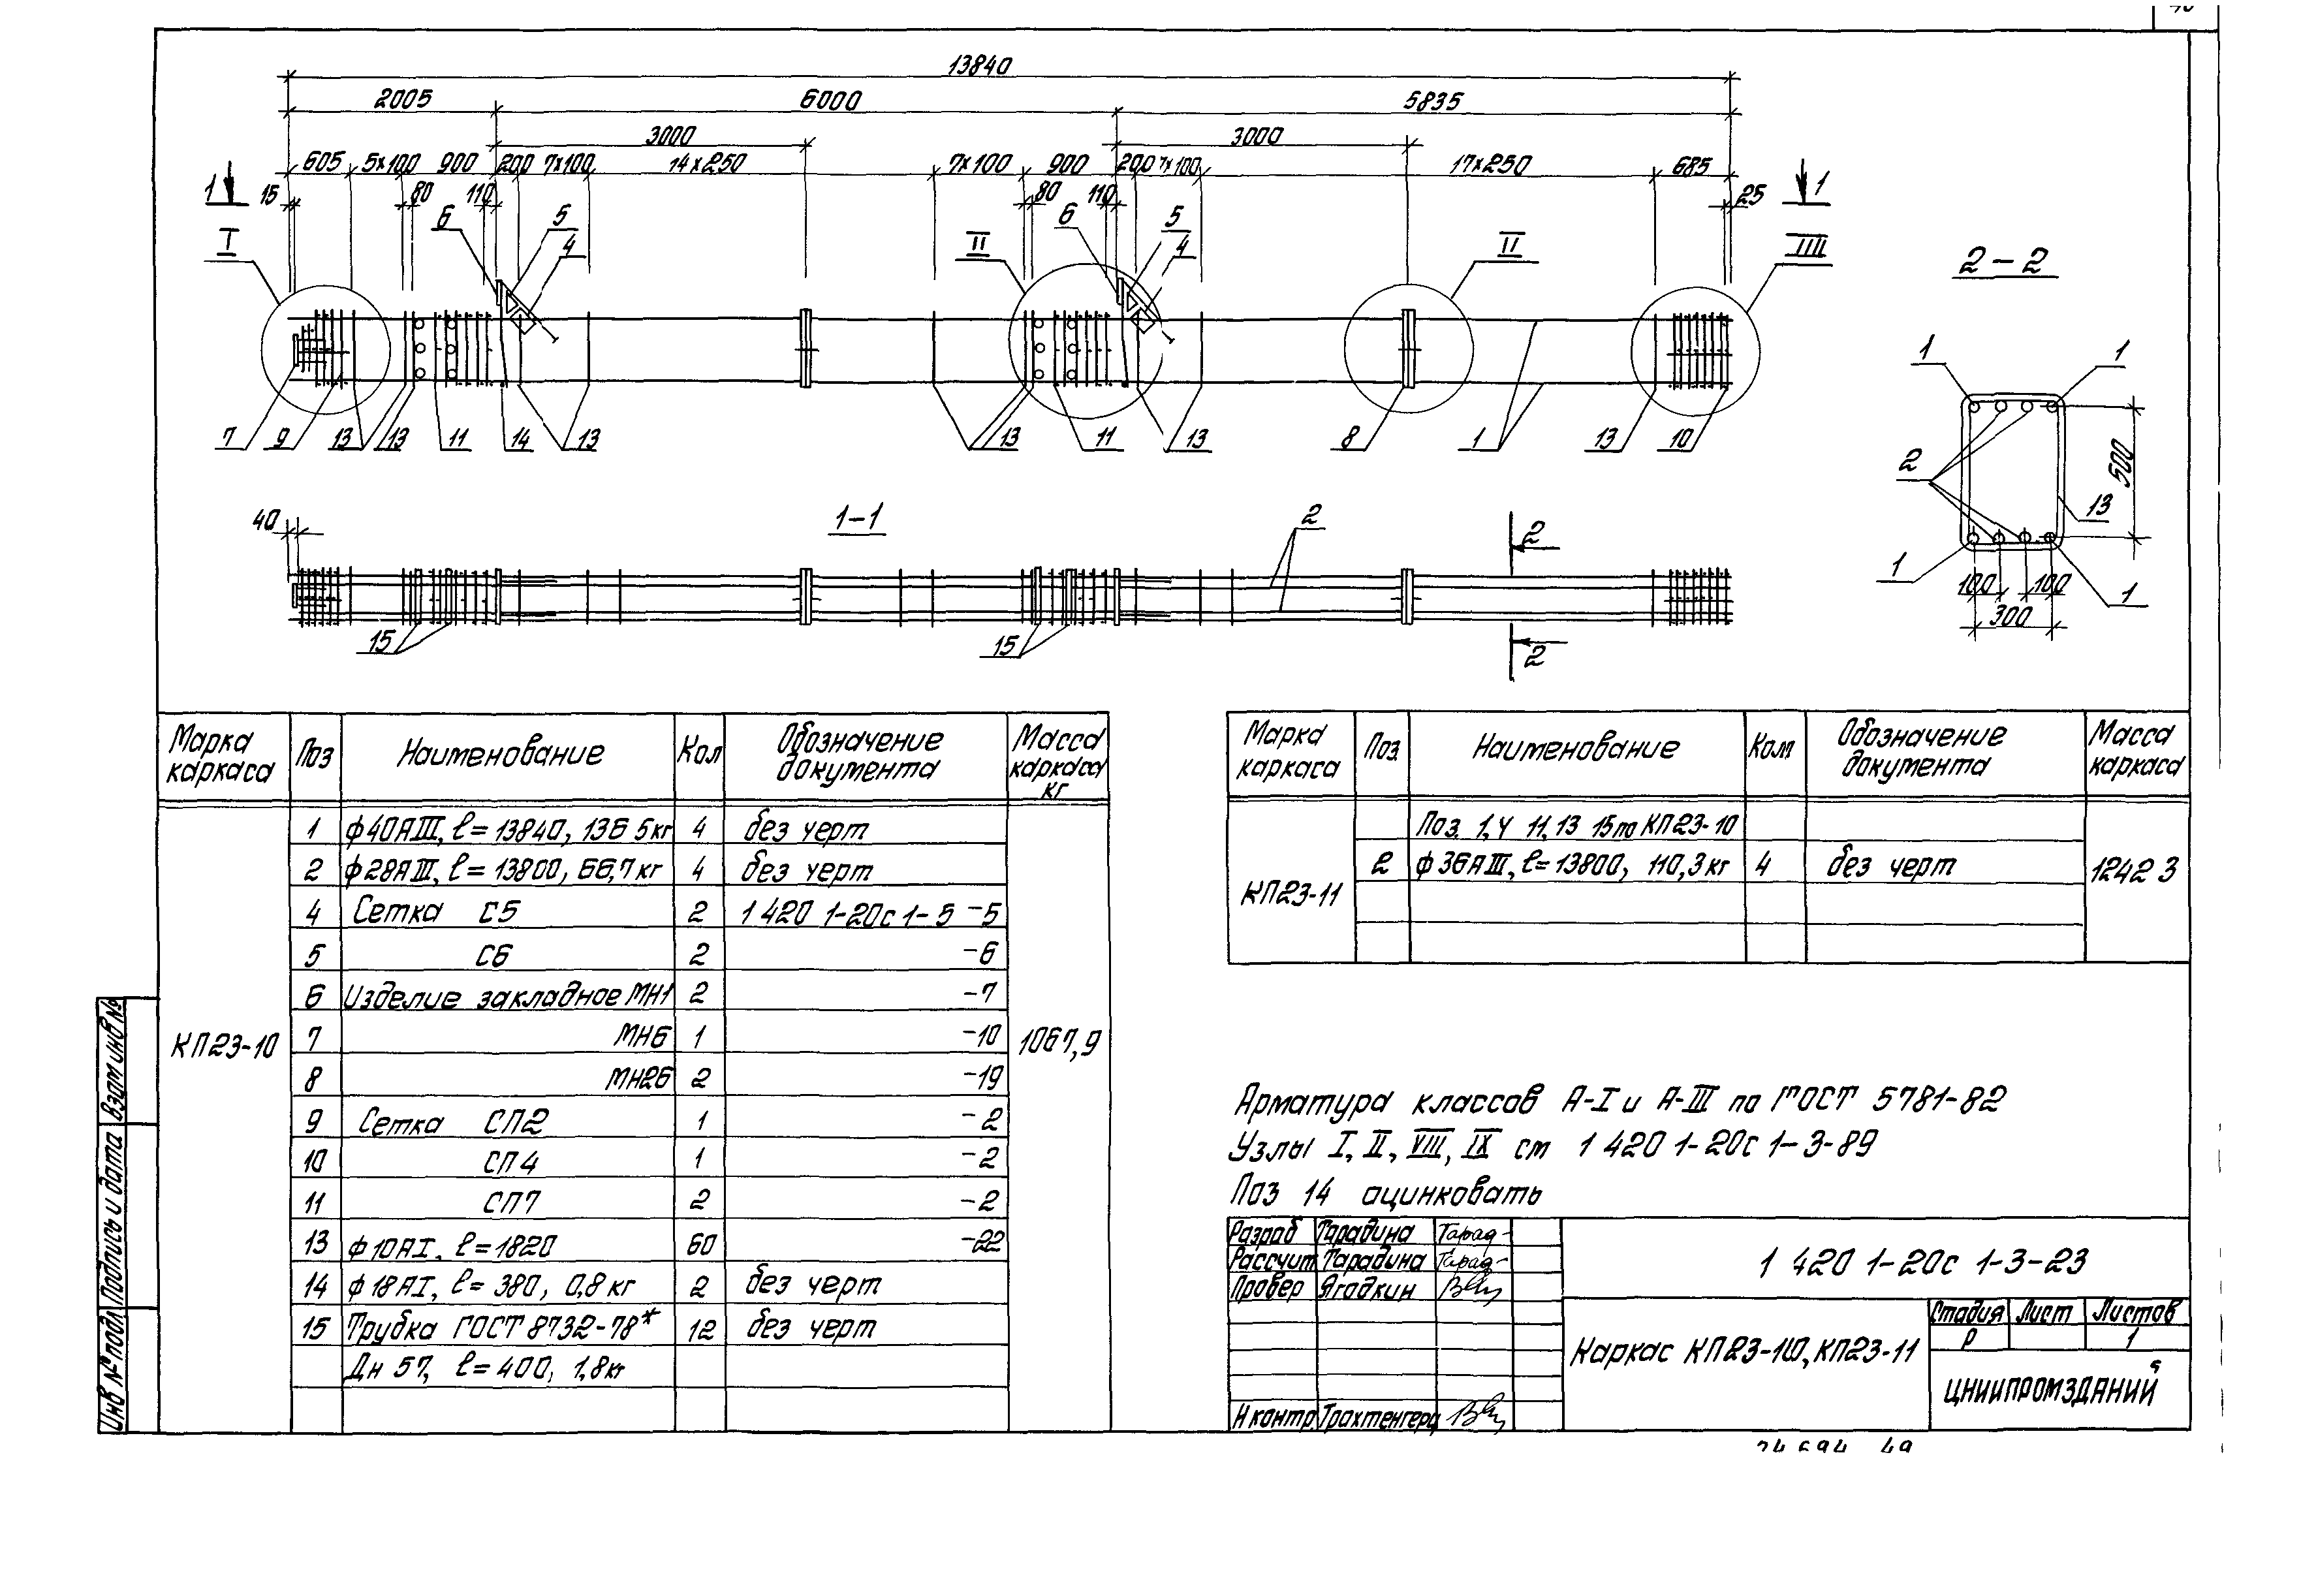 13840
2005 6000 5835
3000 3000
605 5×100 900 200 7×100 14×250 7×100 900 200 7×100 17×250 685
1 15 80 110 80 110 25 1
6 5 4 6 5 4
I II II VIII
7 9 13 13 11 14 13 13 11 13 8 1 13 10
2-2
1 1
2 13 500
1 1
100 100
300
1-1
40 2 2
15 15 2
Марка каркаса Поз Наименование Кол Обозначение документа Масса каркаса кг
1 ф40АIII, ℓ=13840, 136 5кг 4 без черт
2 ф28АIII, ℓ=13800, 66,7кг 4 без черт
4 Сетка С5 2 1 420 1-20с 1-5 -5
5 С6 2 -6
6 Изделие закладное МН1 2 -7
КП23-10 7 МН6 1 -10 1067,9
8 МН26 2 -19
9 Сетка СП2 1 -2
10 СП4 1 -2
11 СП7 2 -2
13 ф10АI, ℓ=1820 60 -22
14 ф18АI, ℓ=380, 0,8кг 2 без черт
15 Трубка ГОСТ 8732-78* 12 без черт
Дн 57, ℓ=400, 1,8кг
Марка каркаса Поз Наименование Кол Обозначение документа Масса каркаса
Поз. 1,4 11,13 15 по КП23-10
КП23-11 2 ф36АIII, ℓ=13800, 110,3кг 4 без черт 1242 3
Арматура классов А-I и А-III по ГОСТ 5781-82
Узлы I, II, VIII, IX см 1 420 1-20с 1-3-89
Поз 14 оцинковать
Разраб Тарадина
Рассчит Тарадина
Провер Ягодкин
Н контр. Трахтенгерц
1 420 1-20с 1-3-23
Каркас КП23-10, КП23-11
Стадия Лист Листов
Р 1
ЦНИИПРОМЗДАНИЙ
Инв № подл Подпись и дата Взам инв №
24694 49